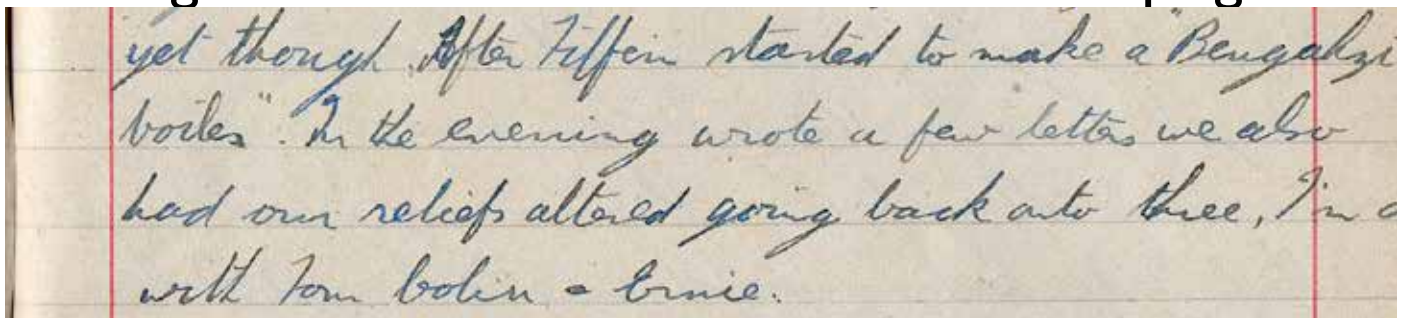 yet though. After Tiffin started to make a "Bengahzi
boiler". In the evening wrote a few letters we also
had our reliefs altered going back onto three, I'm
with Tom Colin & Ernie.